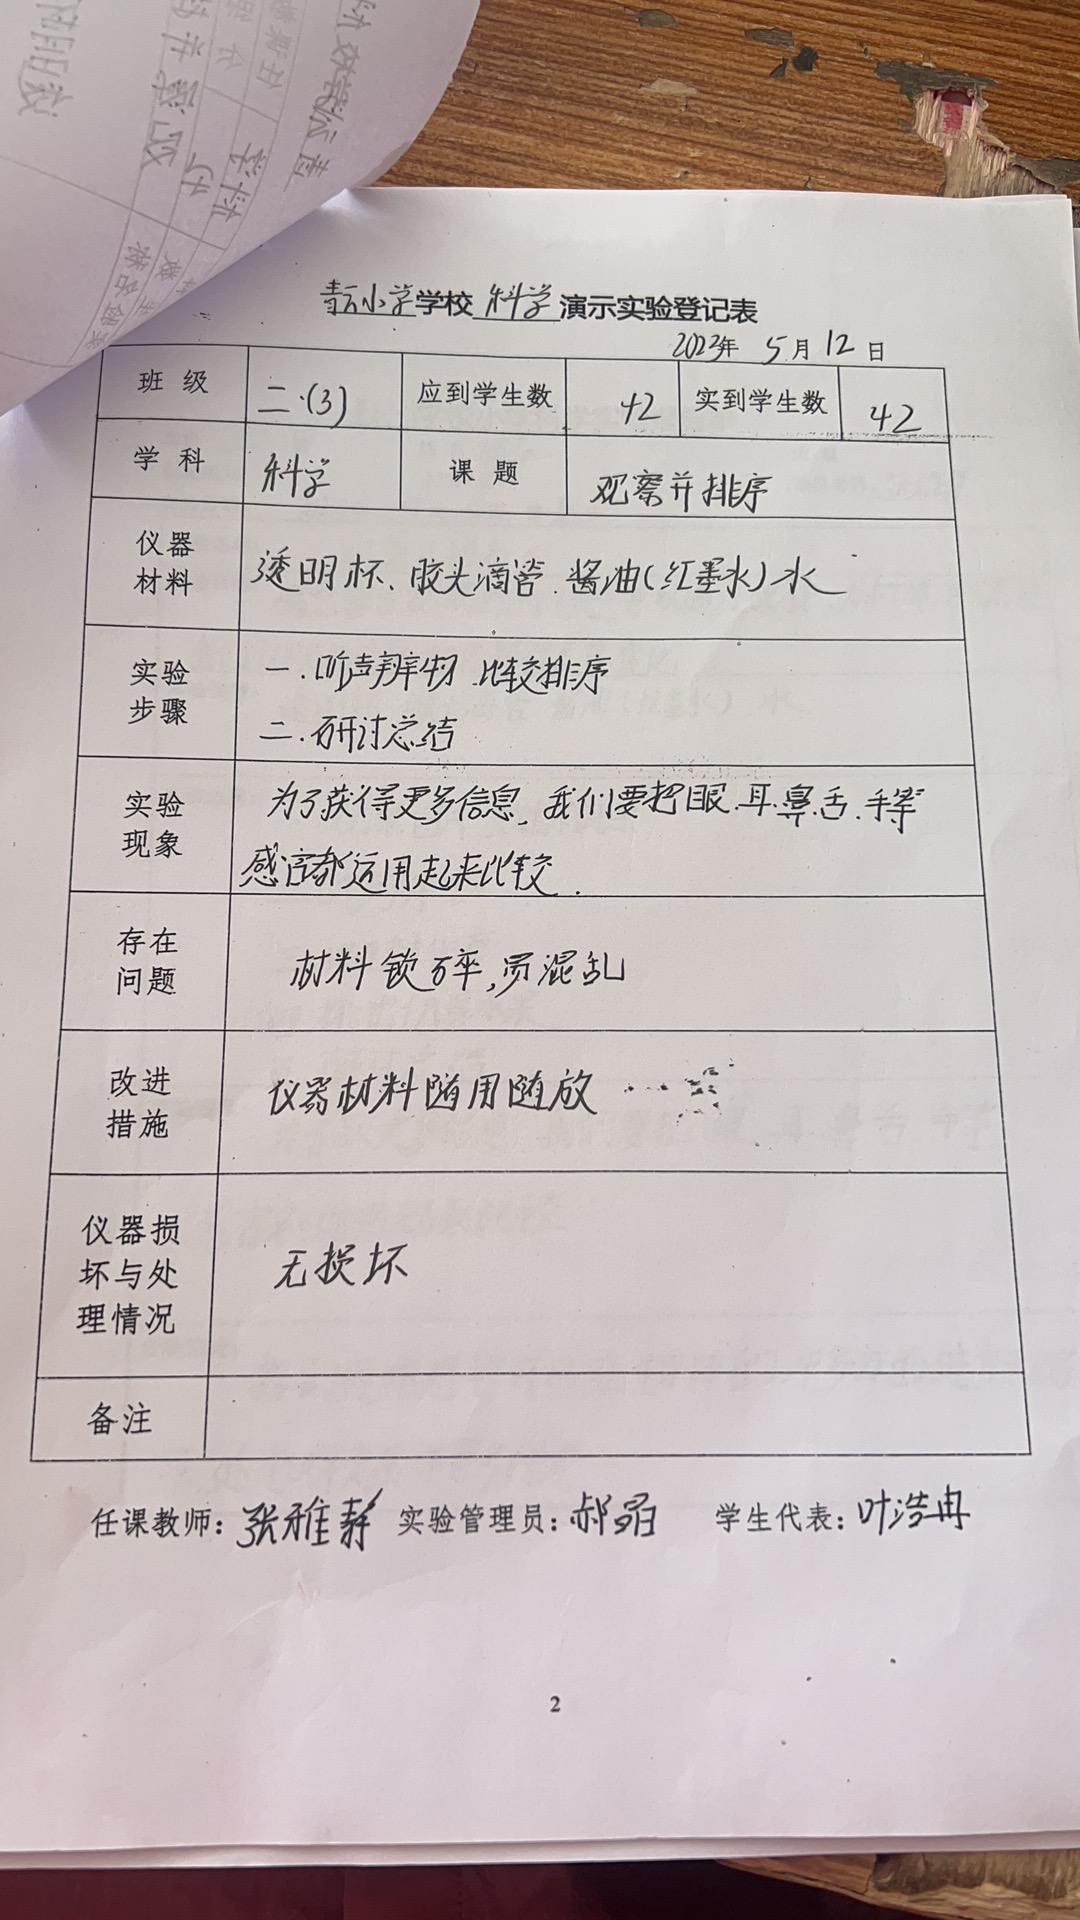 小学学校 科学 演示实验登记表
2023年 5月12日
班级 二.(3) 应到学生数 42 实到学生数 42
学科 科学 课题 观察并排序
仪器材料 透明杯、胶头滴管.酱油(红墨水)水
实验步骤 一.听声辨物 比较排序
二.研讨总结
实验现象 为了获得更多信息,我们要把眼.耳.鼻.舌.手等
感官都运用起来比较.
存在问题 材料锁碎,易混乱
改进措施 仪器材料随用随放
仪器损坏与处理情况 无损坏
备注
任课教师:张雅静 实验管理员:郝 学生代表:叶浩冉
2